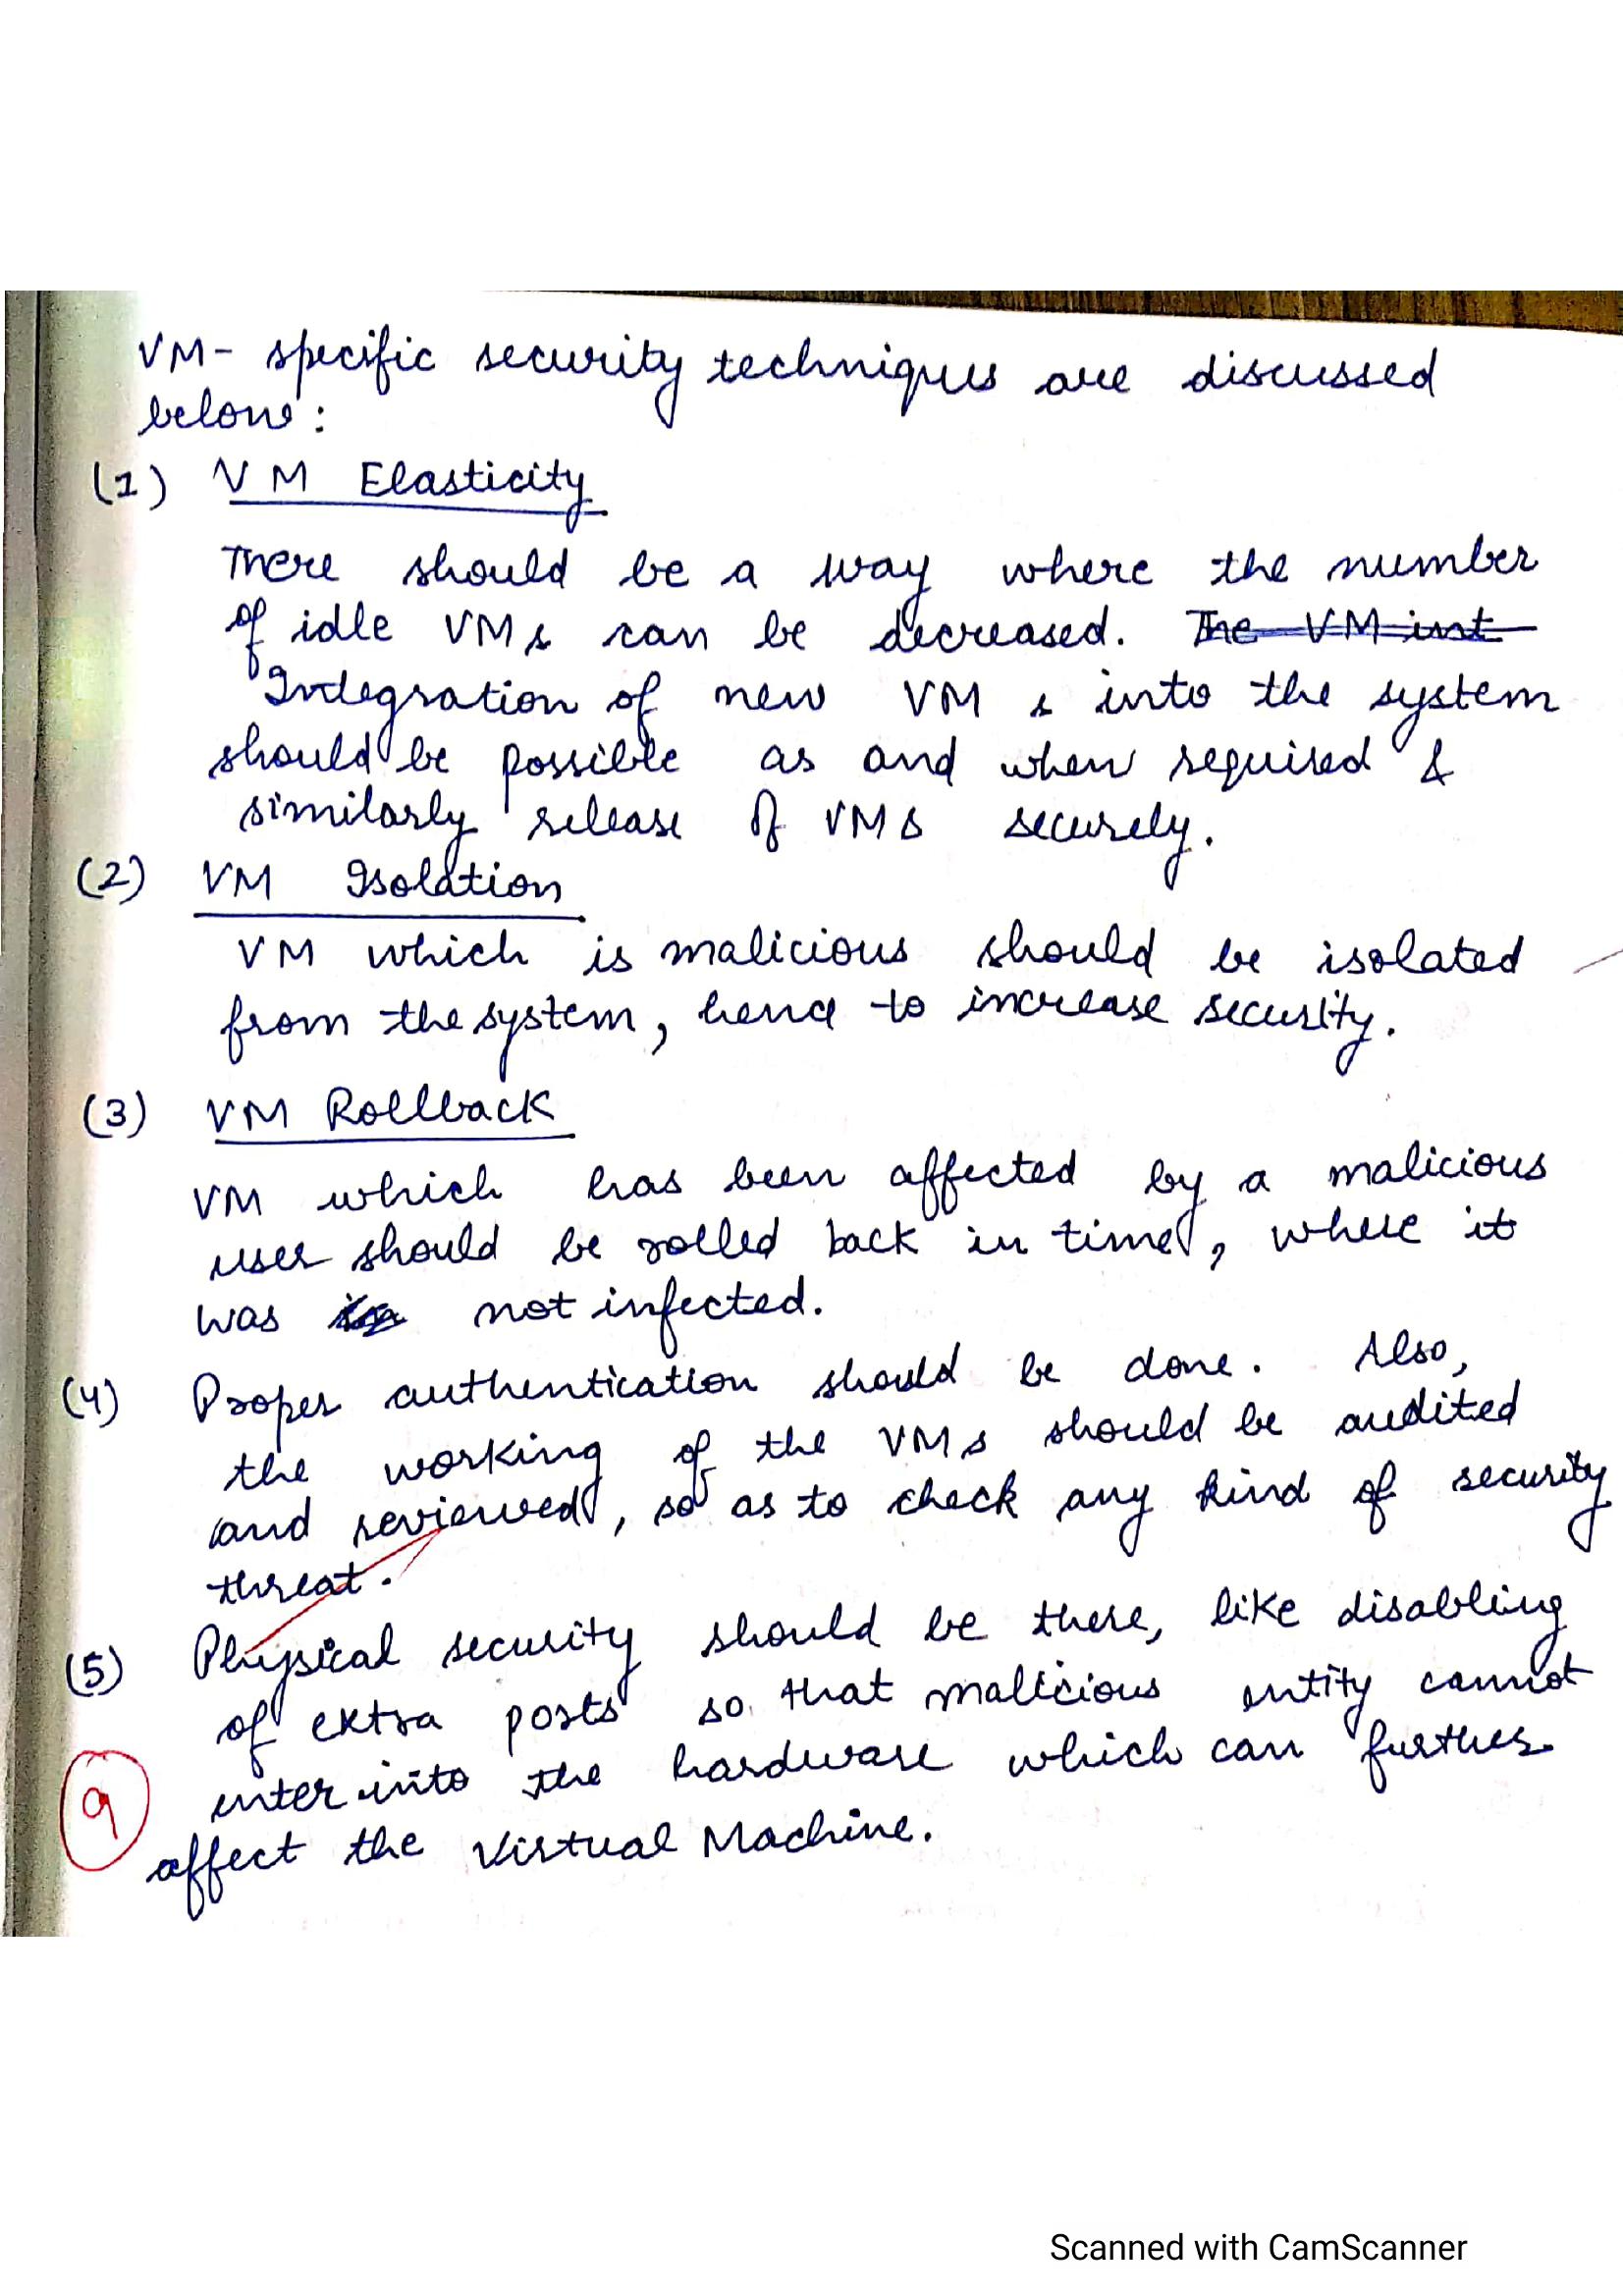 VM- specific security techniques are discussed
below:
(1) VM Elasticity
There should be a way where the number
of idle VMs can be decreased. The VM int
Integration of new VMs into the system
should be possible as and when required &
similarly release of VMs securely.
(2) VM Isolation
VM which is malicious should be isolated
from the system, hence to increase security.
(3) VM Rollback
VM which has been affected by a malicious
user should be rolled back in time, where it
was not infected.
(4) Proper authentication should be done. Also,
the working of the VMs should be audited
and reviewed, so as to check any kind of security
threat.
(5) Physical security should be there, like disabling
of extra ports so that malicious entity cannot
enter into the hardware which can further
9
affect the Virtual Machine.
Scanned with CamScanner